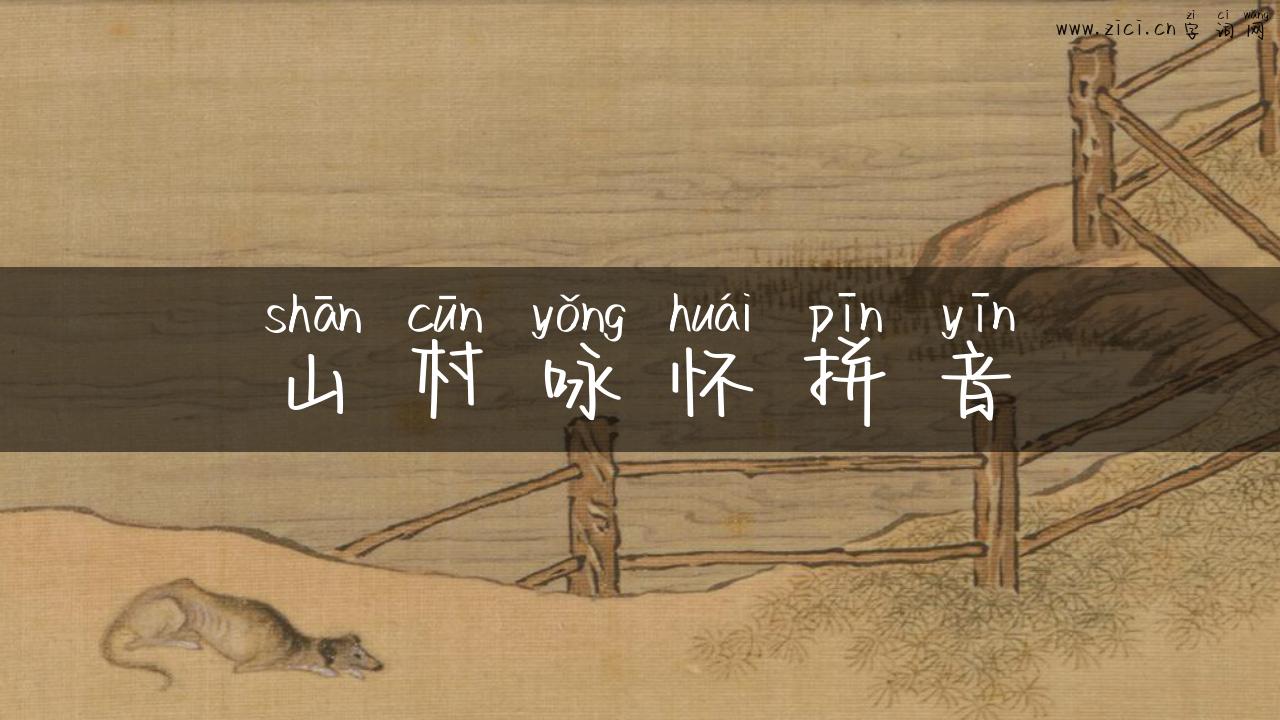 zì cí wǎng
www.zici.cn 字词网
shān cūn yǒng huái pīn yīn
山村咏怀拼音